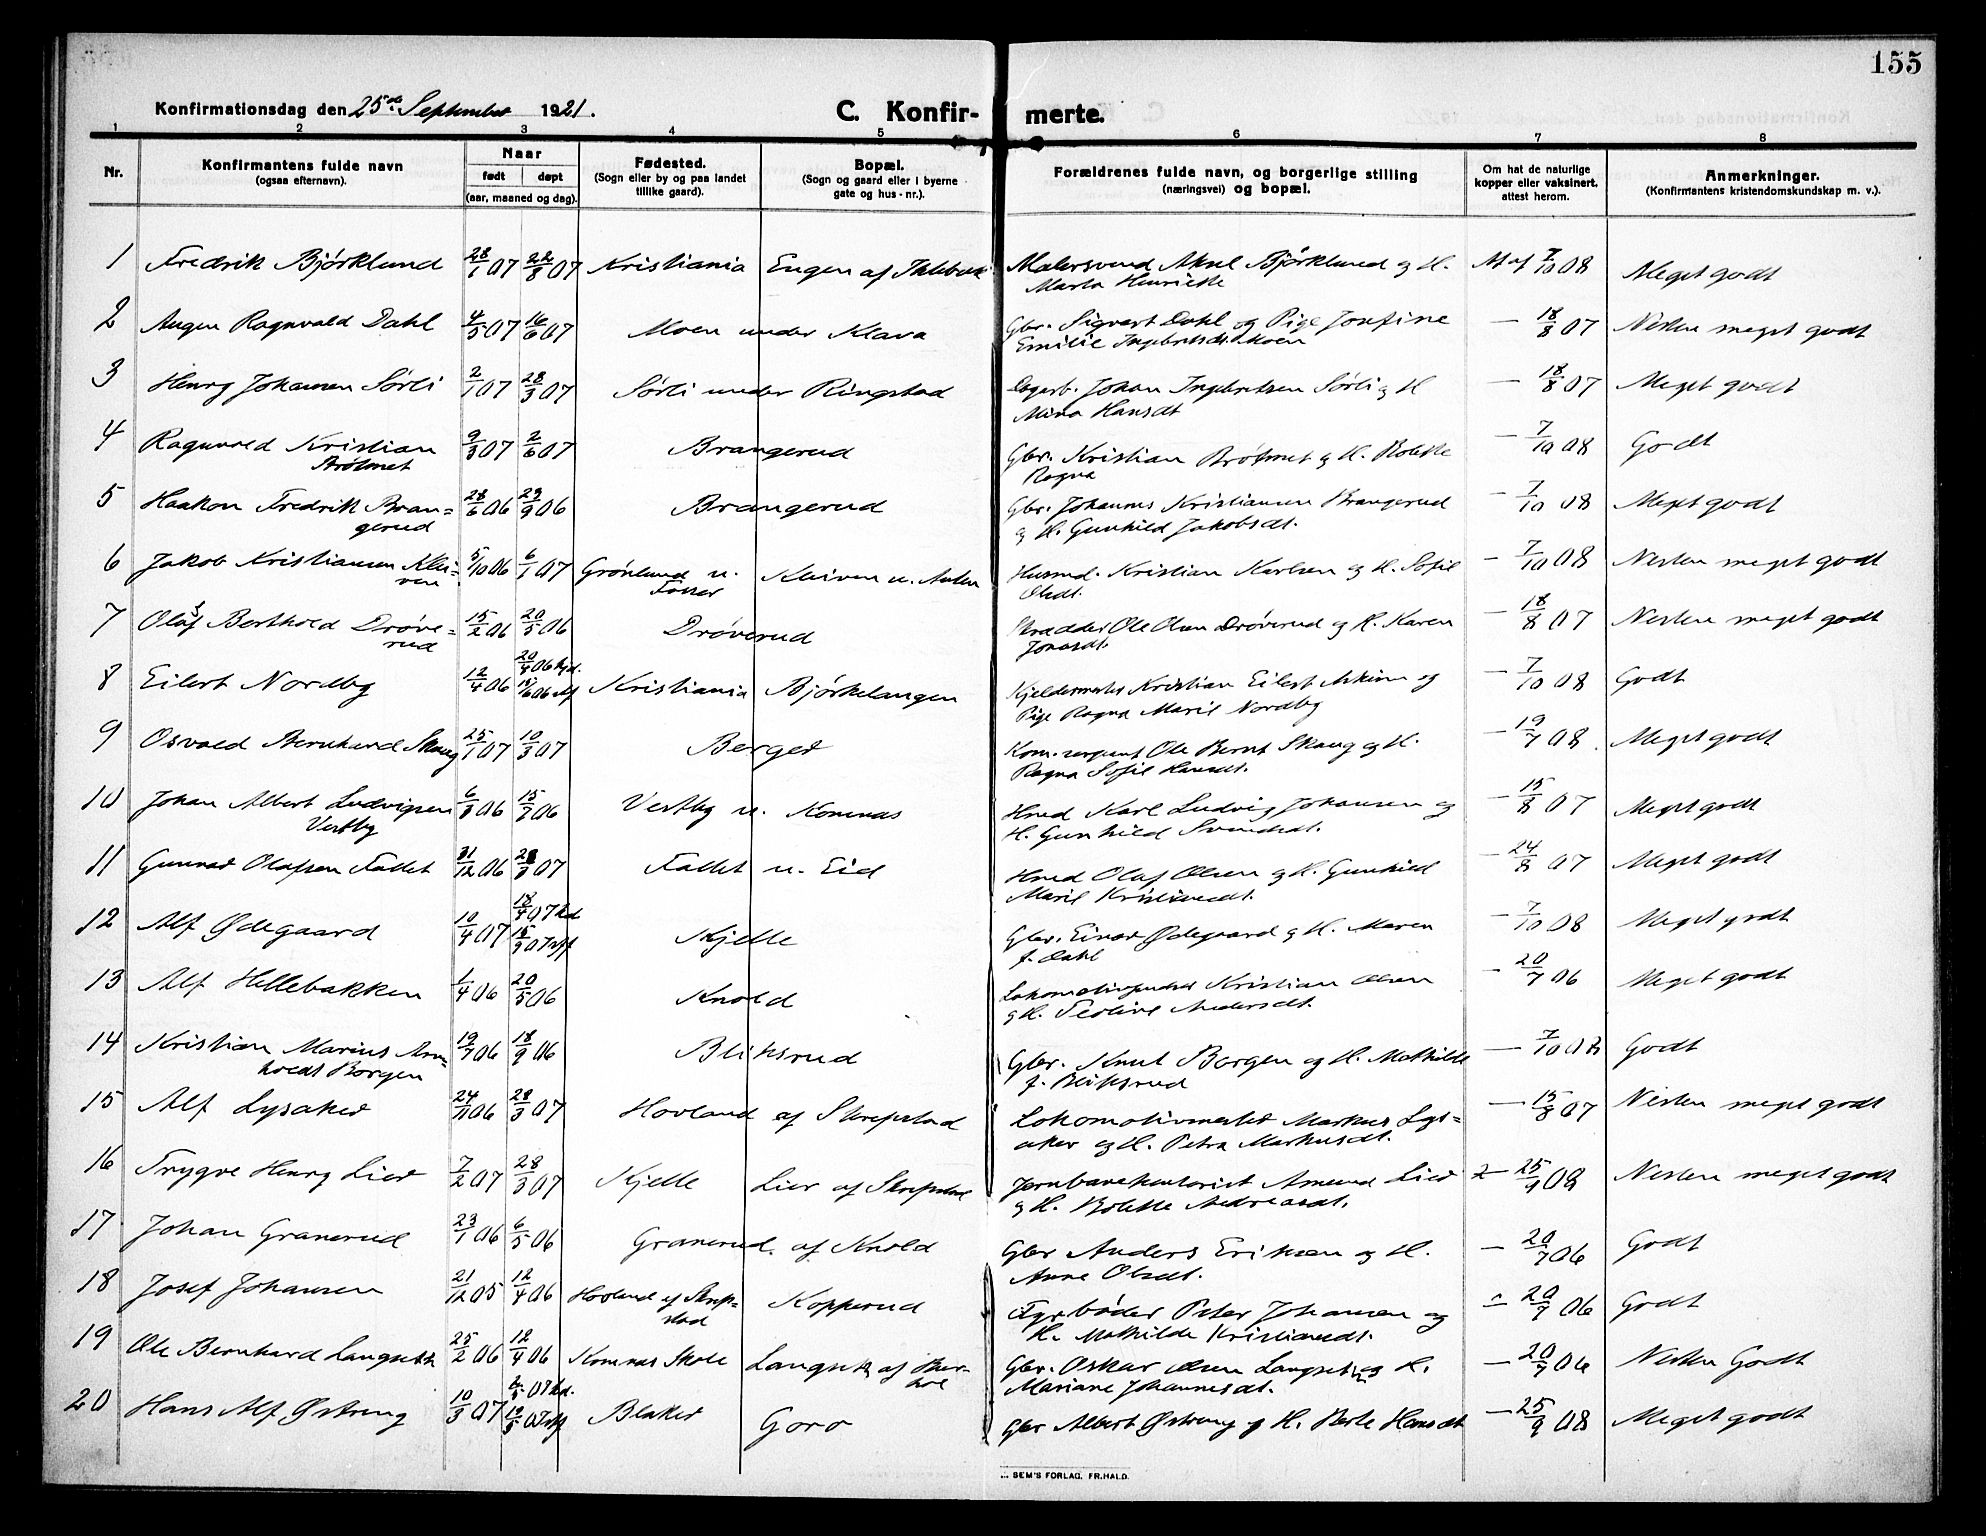 155
Konfirmationsdag den 25de September 1921.
C. Konfir- merte.
1 2 3 4 5 6 7 8
Nr.
Konfirmantens fulde navn
(ogsaa efternavn).
Naar
født døpt
(aar, maaned og dag).
Fødested.
(Sogn eller by og paa landet
tillike gaard).
Bopæl.
(Sogn og gaard eller i byerne
gate og hus-nr.).
Forældrenes fulde navn, og borgerlige stilling
(næringsvei) og bopæl.
Om hat de naturlige
kopper eller vaksinert,
attest herom.
Anmerkninger.
(Konfirmantens kristendomskundskap m. v.).
1 Fredrik Bjørklund 28/1 07 22/8 07 Kristiania Eugen af Malersvend Aksel Bjørklund og H. At af 7/10 08 Meget godt
Marta Henriette
2 Augen Ragnvald Dahl 4/5 07 16/6 07 Moen under Klava Gbr. Sigvart Dahl og Pige Josefine — 18/8 07 Nesten meget godt
Emilie Ingebretsdt. Moen
3 Henry Johansen Sørli 2/1 07 28/3 07 Sørli under Ringstad Dagarb. Johan Ingebretsen Sørli og H — 18/8 07 Meget godt
Mina Hansdt
4 Ragnvald Kristian 9/3 07 2/6 07 Brangerud Gbr. Kristian Brøtmet og H. Bolette — 7/10 08 Godt
Brøtmet Ragna
5 Haakon Fredrik Bran= 28/6 06 29/9 06 Brangerud Gbr. Johannes Kristiansen Brangerud — 7/10 08 Meget godt
gerud og H. Gunhild Jakobsdt.
6 Jakob Kristiansen Klei- 5/10 06 6/1 07 Grønlund u. Kleiven u. Husmd. Kristian Karlsen og H. Sofie — 7/10 08 Nesten meget godt
ven Fosser Olsdt.
7 Olaf Berthold Drøve= 15/2 06 20/5 06 Drøverud Skrædder Ole Olsen Drøverud og H. Karen — 18/8 07 Nesten meget godt
rud Jonasdt.
8 Eilert Nordby 12/4 06 20/4 06 hjd. Kristiania Bjørkelangen Kjeldermester Kristian Eilert Askim og — 7/10 08 Godt
Pige Ragna Marie Nordby
9 Osvald Bernhard Skaug 25/1 07 10/3 07 Berget Kom.sergent Ole Bernt Skaug og H. — 19/7 08 Meget godt
Ragna Sofie Hansdt.
10 Johan Albert Ludvigsen 6/8 06 Vestby u. Komnæs Hmd Karl Ludvig Johansen og — 15/8 07 Meget godt
Vestby H. Gunhild Svendsdt.
11 Gunnar Olafsen Fallet 31/12 06 Fallet u. Eid Hmd Olaf Olsen og H. Gunhild — 24/8 07 Meget godt
Marie Kristiansdt.
12 Alf Ødegaard 10/4 07 18/4 07 hd Kjelle Gbr. Einar Ødegaard og H. Maren — 7/10 08 Meget godt
f. Dahl
13 Alf Hellebakken 1/4 06 20/5 06 Knold Lokomotivpudser Kristian Olsen — 20/7 06 Meget godt
og H. Teoline Andersdt.
14 Kristian Marius Arn= 19/7 06 18/9 06 Bliksrud Gbr. Knut Borgen og H. Mathilde — 7/10 08 Godt
holdt Borgen f. Bliksrud
15 Alf Lysaker 24/11 06 28/3 07 Hovland af Skrepstad Lokomotivmester Markus Lys= — 15/8 07 Nesten meget godt
aker og H. Petra Markusdt.
16 Trygve Henry Lier 7/2 07 28/3 07 Kjelle Lier af Skrepstad Jernbanekontorist Amund Lier — 25/9 08 Nesten meget godt
og H. Bolette Andreasdt.
17 Johan Granerud 23/1 06 6/5 06 Granerud af Knold Gbr Anders Eriksen og H. — 20/7 06 Godt
Anne Olsdt.
18 Josef Johansen 21/12 05 12/4 06 Hovland af Skrep= Kopperud Fyrbøder Peter Johansen og — 20/7 06 Godt
stad H. Mathilde Kristiansdt.
19 Ole Bernhard Langseth 25/2 06 12/4 06 Komnæs Skole Langseth af Gbr. Oskar Olsen Langseth og H. — 20/7 06 Nesten Godt
Mariane Johannesdt.
20 Hans Alf Østreng 10/3 07 Blaker Goro Gbr Albert Østreng og H. Berte Hansdt — 25/9 08 Meget godt
SEM'S FORLAG, FR.HALD.